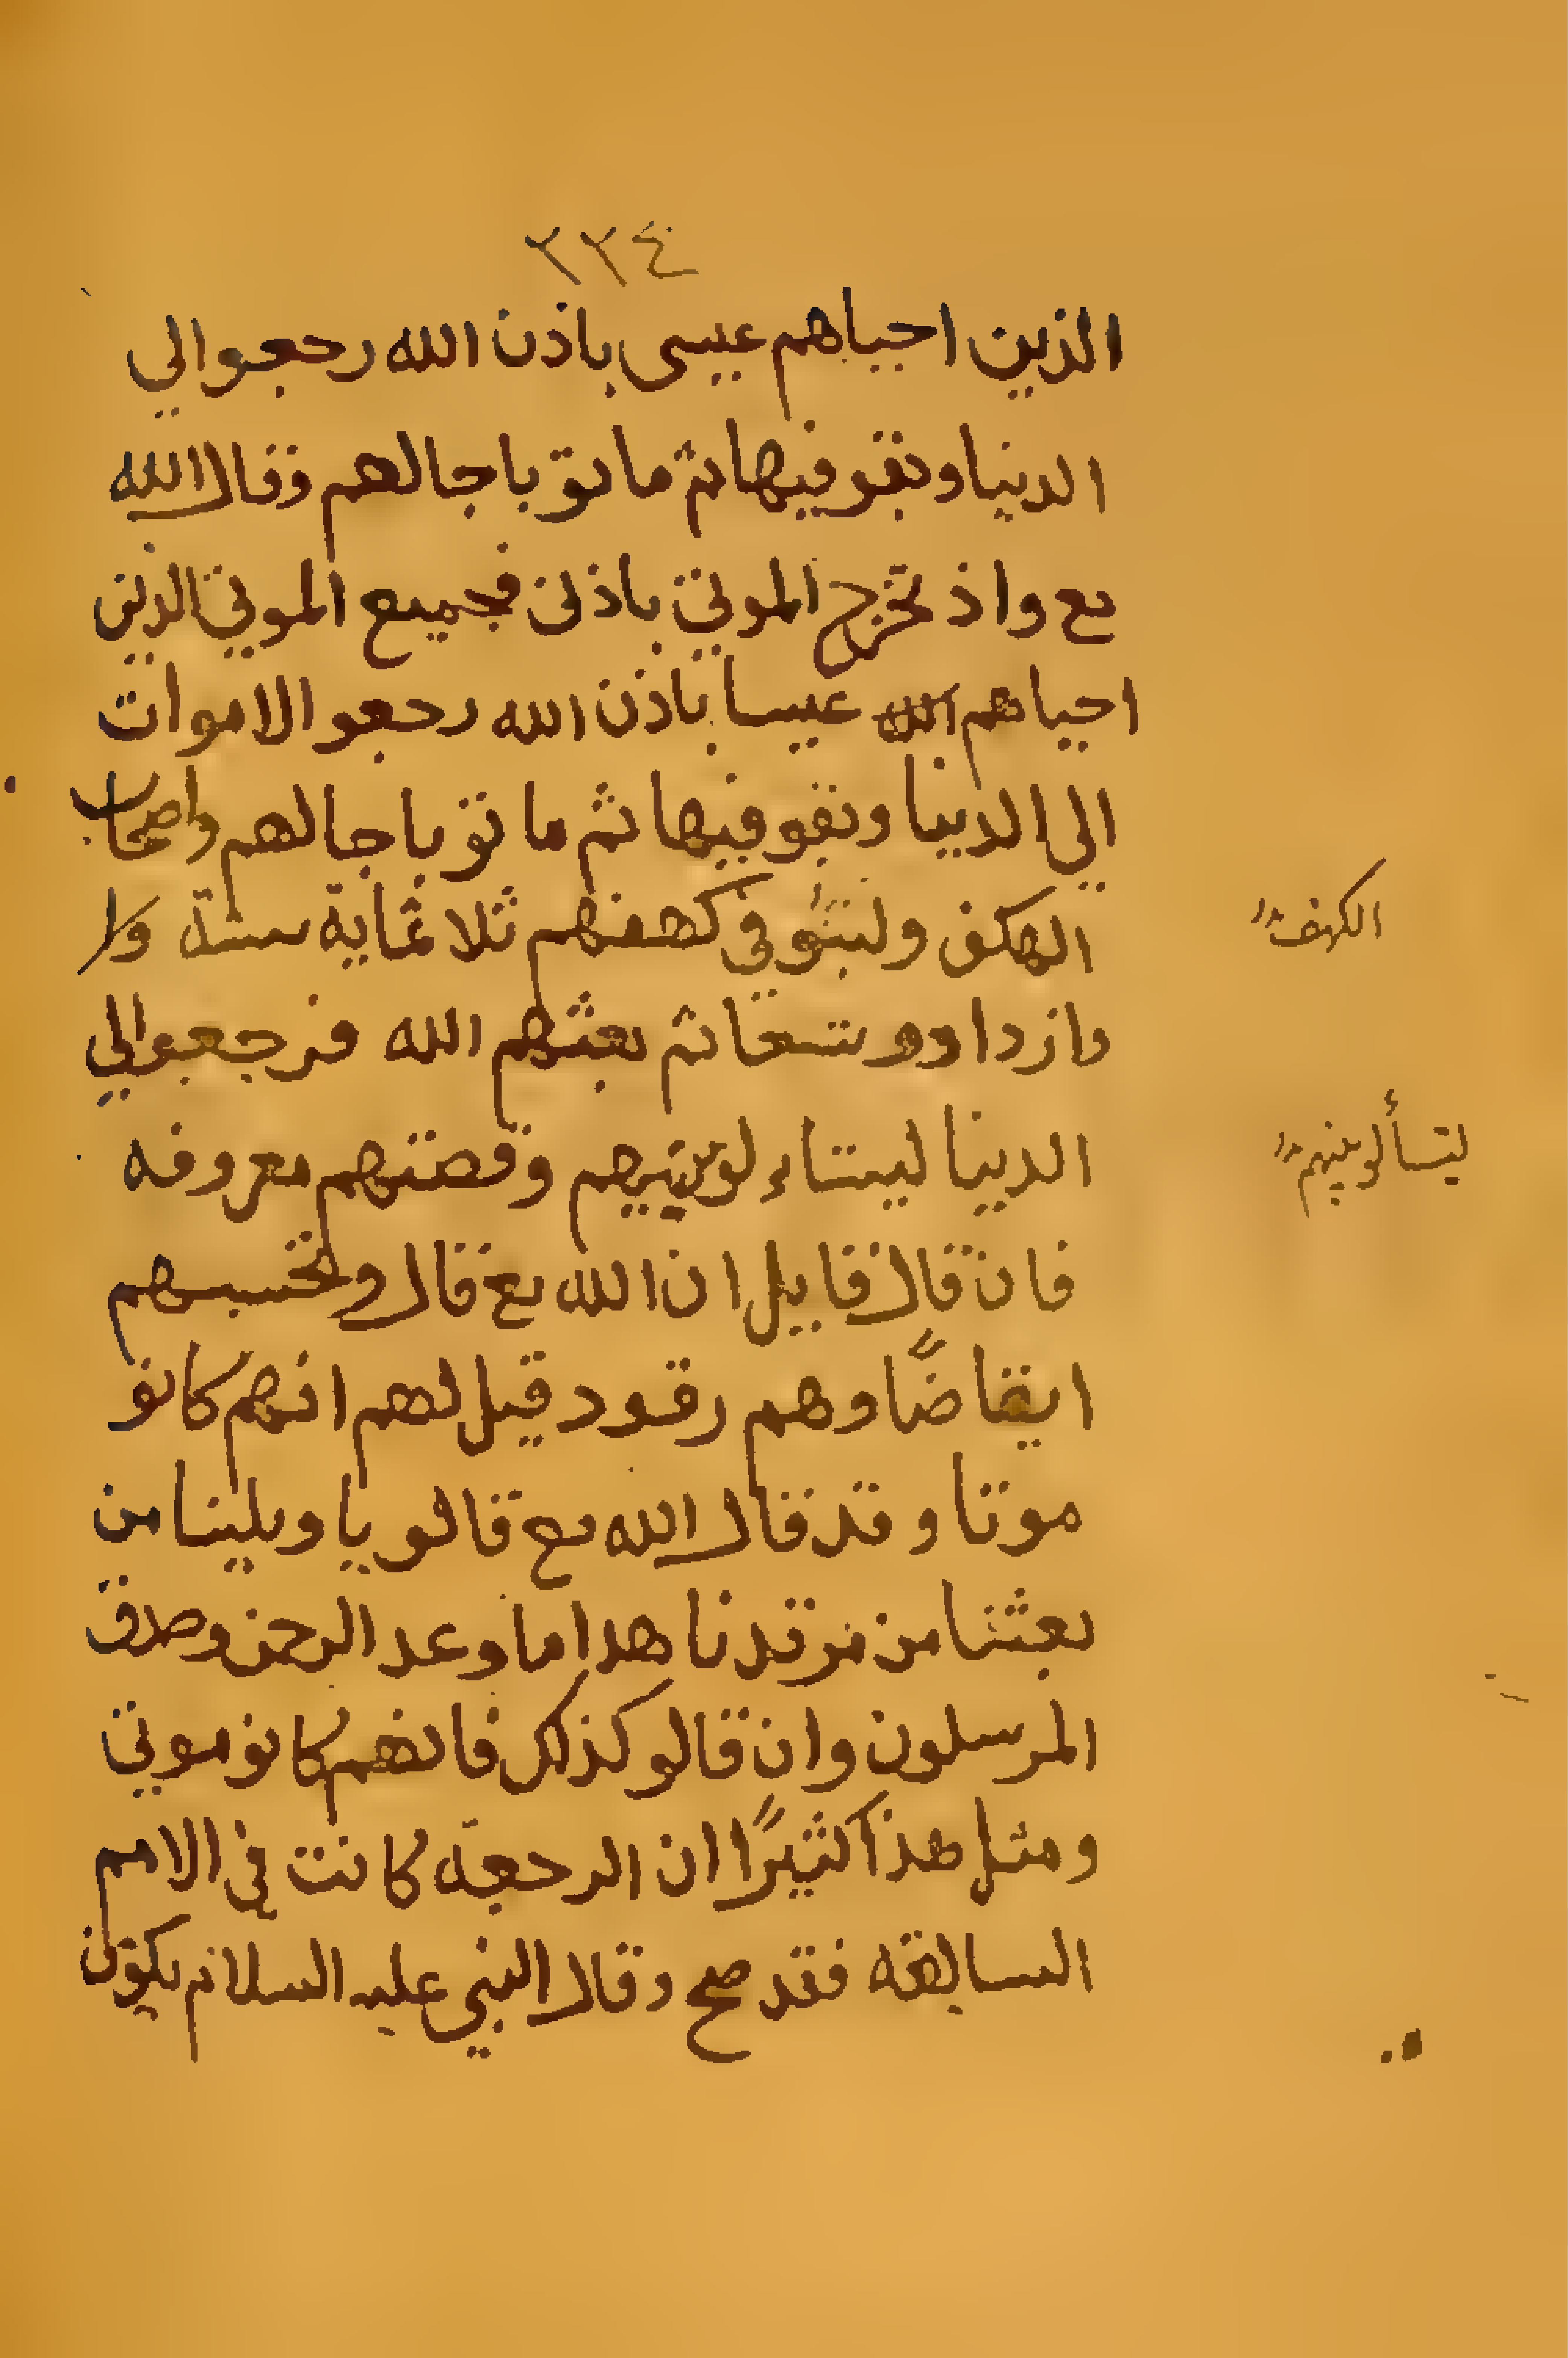 ٢٢٤
الذين احياهم عيسى باذن الله رجعوا الي
الدنيا وبقو فيها ثم ماتو باجالهم وقال الله
تع واذ تخرج الموتي باذني فجميع الموتي الذين
احياهم الله عيسا باذن الله رجعو الاموات
الى الدنيا وبقو فيها ثم ماتو باجالهم واصحاب
الهكف ولبثو في كهفهم ثلاثماية سنة وا
الكهف
وازدادو تسعا ثم بعثهم الله فرجعوا الي
الدنيا ليتساء لو بينهم وقصتهم معروفه
ليتسألو بينهم
فان قال قايل ان الله تع قال وتحسبهم
ايقاضًا وهم رقود قيل لهم انهم كانو
موتا وقد قال الله تع قالو يا ويلينا من
بعثنا من مرقدنا هدا ما وعد الرحمن وصدق
المرسلون وان قالو كذلك فانهم كانو موتي
ومثل هذا كثيرًا ان الرجعة كانت في الامم
السابقه فقد صح وقال النبي عليه السلام يكون